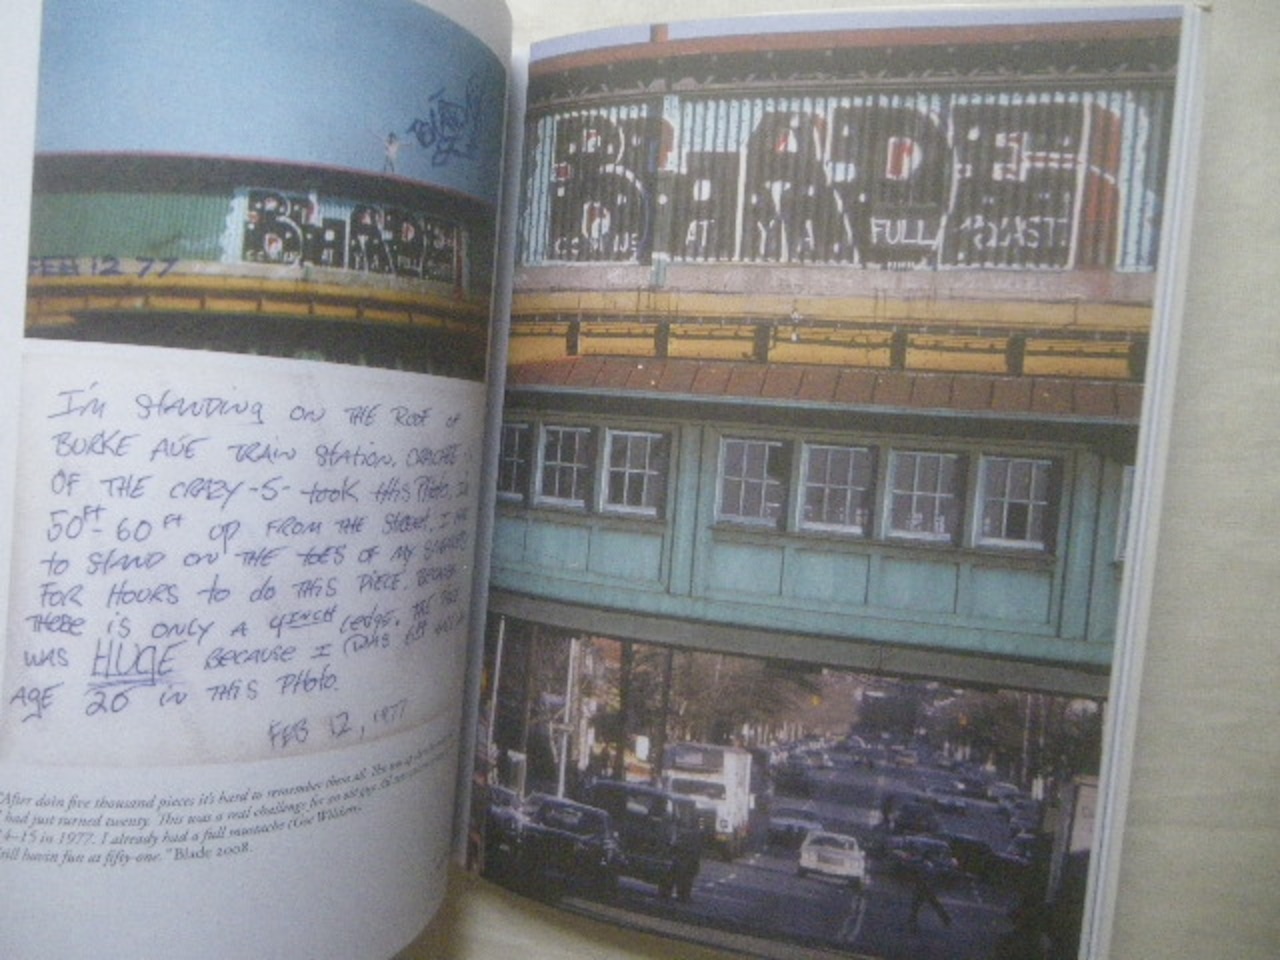 BLADE
FEB 12 77
BLADE
COMING AT YA FULL BLAST!
I'M STANDING ON THE ROOF OF
BURKE AVE TRAIN STATION.
OF THE CRAZY -5- took this Photo.
50FT - 60FT up FROM THE STREET. I
to STAND ON THE toES OF MY
FOR HOURS to do tHiS PIECE. BECAUSE
tHERE is ONLY A 4 INCH LEDGE. THE
WAS HUGE BECAUSE I WAS
AGE 20 iN THIS PHoto.
FEB 12, 1977
"After doin five thousand pieces it's hard to remember them all.
I had just turned twenty. This was a real challenge for
14–15 in 1977. I already had a full mustache
still havin fun at fifty-one." Blade 2008.
BLADE
COMING AT YA FULL BLAST!